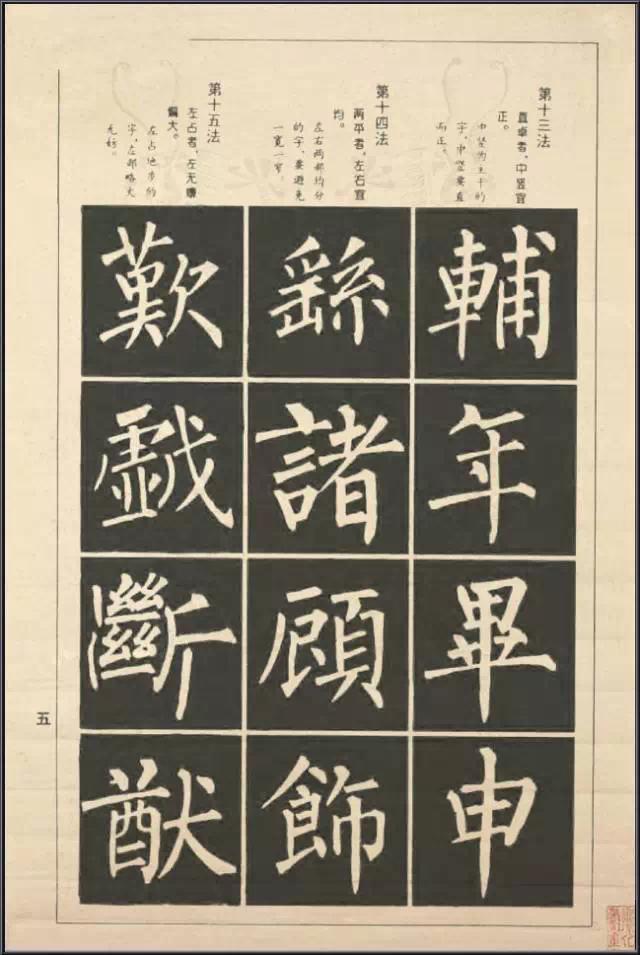 第十三法
直卓者,中竖宜
正。
中竖为主干的
字,中竖要直
而正。
輔
年
畢
申
第十四法
两平者,左右宜
均。
左右两部约分
的字,要避免
一宽一窄。
繇
諸
頋
飾
第十五法
左占者,左无嫌
偏大。
左占地步的
字,左部略大
无妨。
歎
戯
斷
猷
五